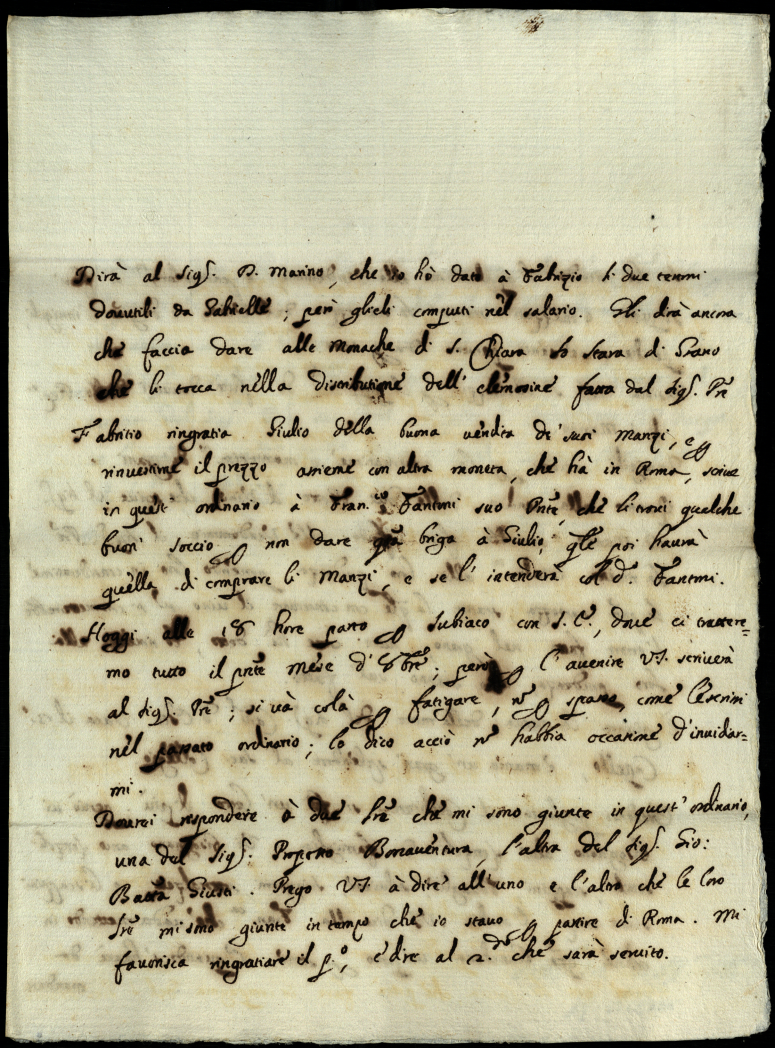 Dirà al Sigr. D. Marino, che io hò dato à Fabrizio li due termi
douutili da Gabielle; però glieli computi nel salario. Gli dirà ancora
che faccia dare alle Monache di S. Chiara lo stara di Grano
che li tocca nella distributione dell' elemosine fatta dal Sigr. Pre
Fabritio ringratia Giulio della buona uendita de' suoi Manzi, e
rinuestirne il prezzo assieme con altra moneta, che hà in Roma, scriue
in quest' ordinario à Fran.co Fantoni suo Pnte, che li troui qualche
buon' soccio non dare briga à Giulio, qle poi haurà
quella di comprare li Manzi, e se l' intenderà col d.o Fantoni.
Hoggi alle 18 hore parto p Subiaco con S. E., doue ci trattere=
mo tutto il pnte mese d' 8bre; però p l' auenire V.S. scriuerà
al Sigr. Pre; si và colà p fatigare, nō p spasso, come le scrissi
nel passato ordinario; lo dico acciò nō habbia occasione d'inuidiar=
mi.
Dourei rispondere à due lre che mi sono giunte in quest' ordinario,
una del Sigr. Prospero Bonauentura, l'altra del Sigr. Gio:
Batta Giusti. Prego V.S. à dire all' uno e l'altro che le loro
lre mi sono giunte in tempo che io stauo p partire di Roma. Mi
fauorisca ringratiare il p.o, e dire al 2.do che sarà seruito.